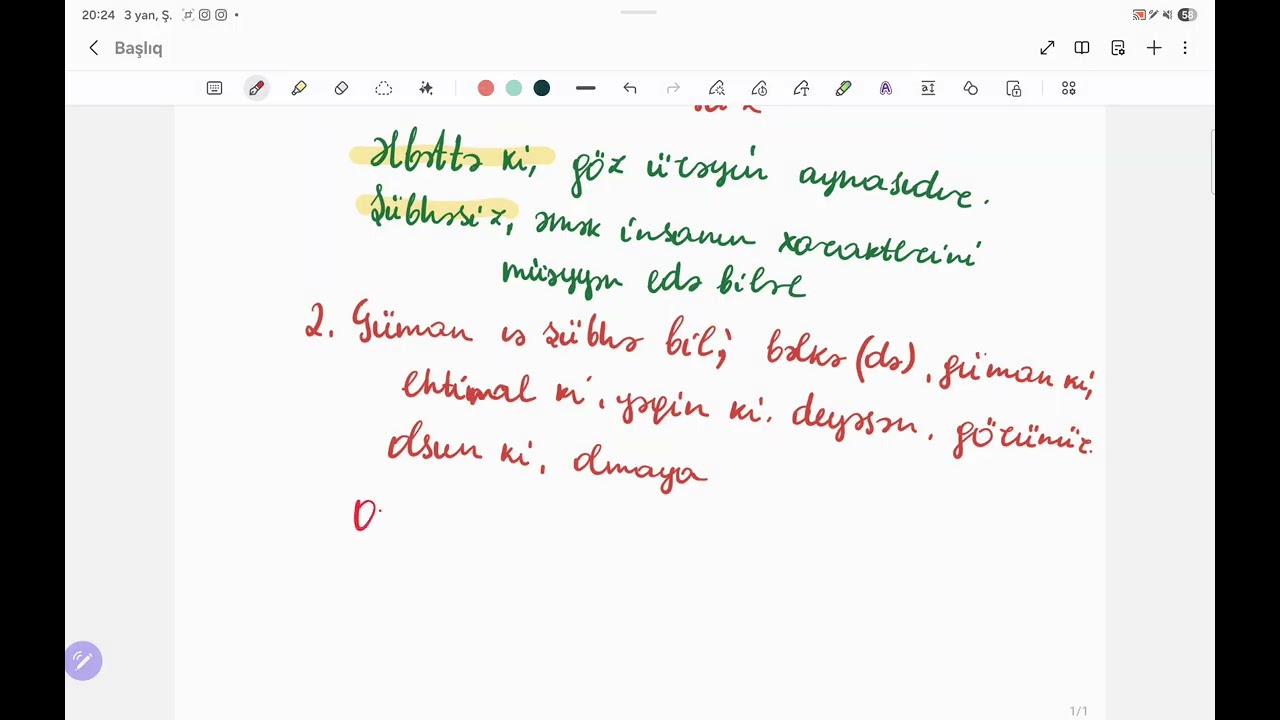 20:24 3 yan, Ş. 58
Başlıq
Əlbəttə ki, göz ürəyin aynasıdır.
Şübhəsiz, əmək insanın xarakterini
müəyyən edə bilər
2. Güman və şübhə bil; bəlkə (də), güman ki,
ehtimal ki, yəqin ki, deyəsən, görünür.
olsun ki, olmaya
O
1/1